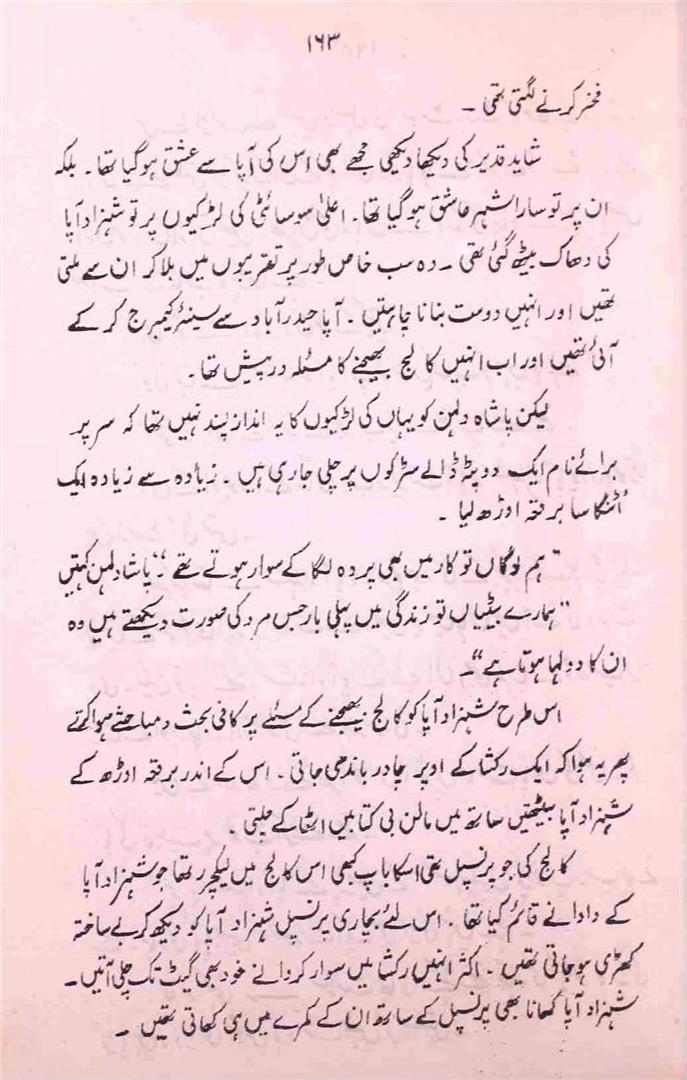 ۱۶۳
فخر کرنے لگتی تھی ۔
شاید قدیر کی دیکھا دیکھی مجھے بھی اس کی آپا سے عشق ہو گیا تھا ۔ بلکہ
ان پر تو سارا شہر عاشق ہو گیا تھا ۔ اعلیٰ سوسائٹی کی لڑکیوں پر تو شہزاد آپا
کی دھاک بیٹھ گئی تھی ۔ وہ سب خاص طور پر تقریبوں میں بلا کر ان سے ملتی
تھیں اور انہیں دوست بنانا چاہتیں ۔ آپا حیدرآباد سے سینئر کیمبرج کر کے
آئی تھیں اور اب انہیں کالج بھیجنے کا مسئلہ درپیش تھا ۔
لیکن پاشاہ دلہن کو یہاں کی لڑکیوں کا یہ انداز پسند نہیں تھا کہ سر پر
برائے نام ایک دوپٹہ ڈالے سڑکوں پر چلی جا رہی ہیں ۔ زیادہ سے زیادہ ایک
اُٹنگا سا برقعہ اوڑھ لیا ۔
"ہم لوگاں تو کار میں بھی پردہ لگا کے سوار ہوتے تھے" پاشاہ دلہن کہتیں
"ہمارے بیٹیاں تو زندگی میں پہلی بار جس مرد کی صورت دیکھتے ہیں وہ
ان کا دولہا ہوتا ہے" ۔
اس طرح شہزاد آپا کو کالج بھیجنے کے مسئلے پر کافی بحث و مباحثے ہوا کرتے
پھر یہ ہوا کہ ایک رکشا کے اوپر چادر باندھی جاتی ۔ اس کے اندر برقعہ اوڑھ کے
شہزاد آپا بیٹھتیں ساتھ میں مالن بی کتابیں اٹھا کے چلتی ۔
کالج کی جو پرنسپل تھی اسکا باپ کبھی اس کالج میں لیکچرر تھا جو شہزاد آپا
کے دادا نے قائم کیا تھا ۔ اس لئے بچاری پرنسپل شہزاد آپا کو دیکھ کر بے ساختہ
کھڑی ہو جاتی تھیں ۔ اکثر انہیں رکشا میں سوار کروانے خود بھی گیٹ تک چلی آتیں ۔
شہزاد آپا کھانا بھی پرنسپل کے ساتھ ان کے کمرے میں ہی کھاتی تھیں ۔